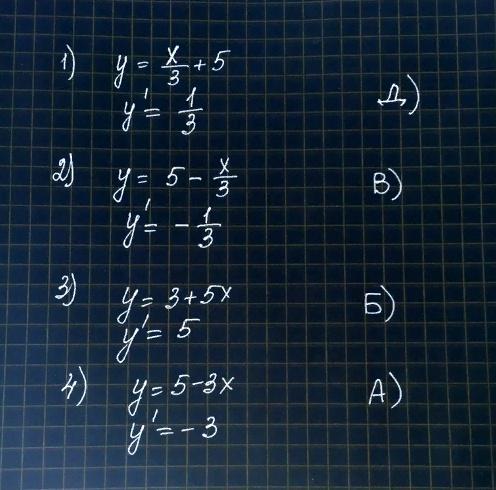 1) y = x/3 + 5
y' = 1/3 Д)
2) y = 5 - x/3 В)
y' = - 1/3
3) y = 3 + 5x Б)
y' = 5
4) y = 5 - 3x А)
y' = - 3